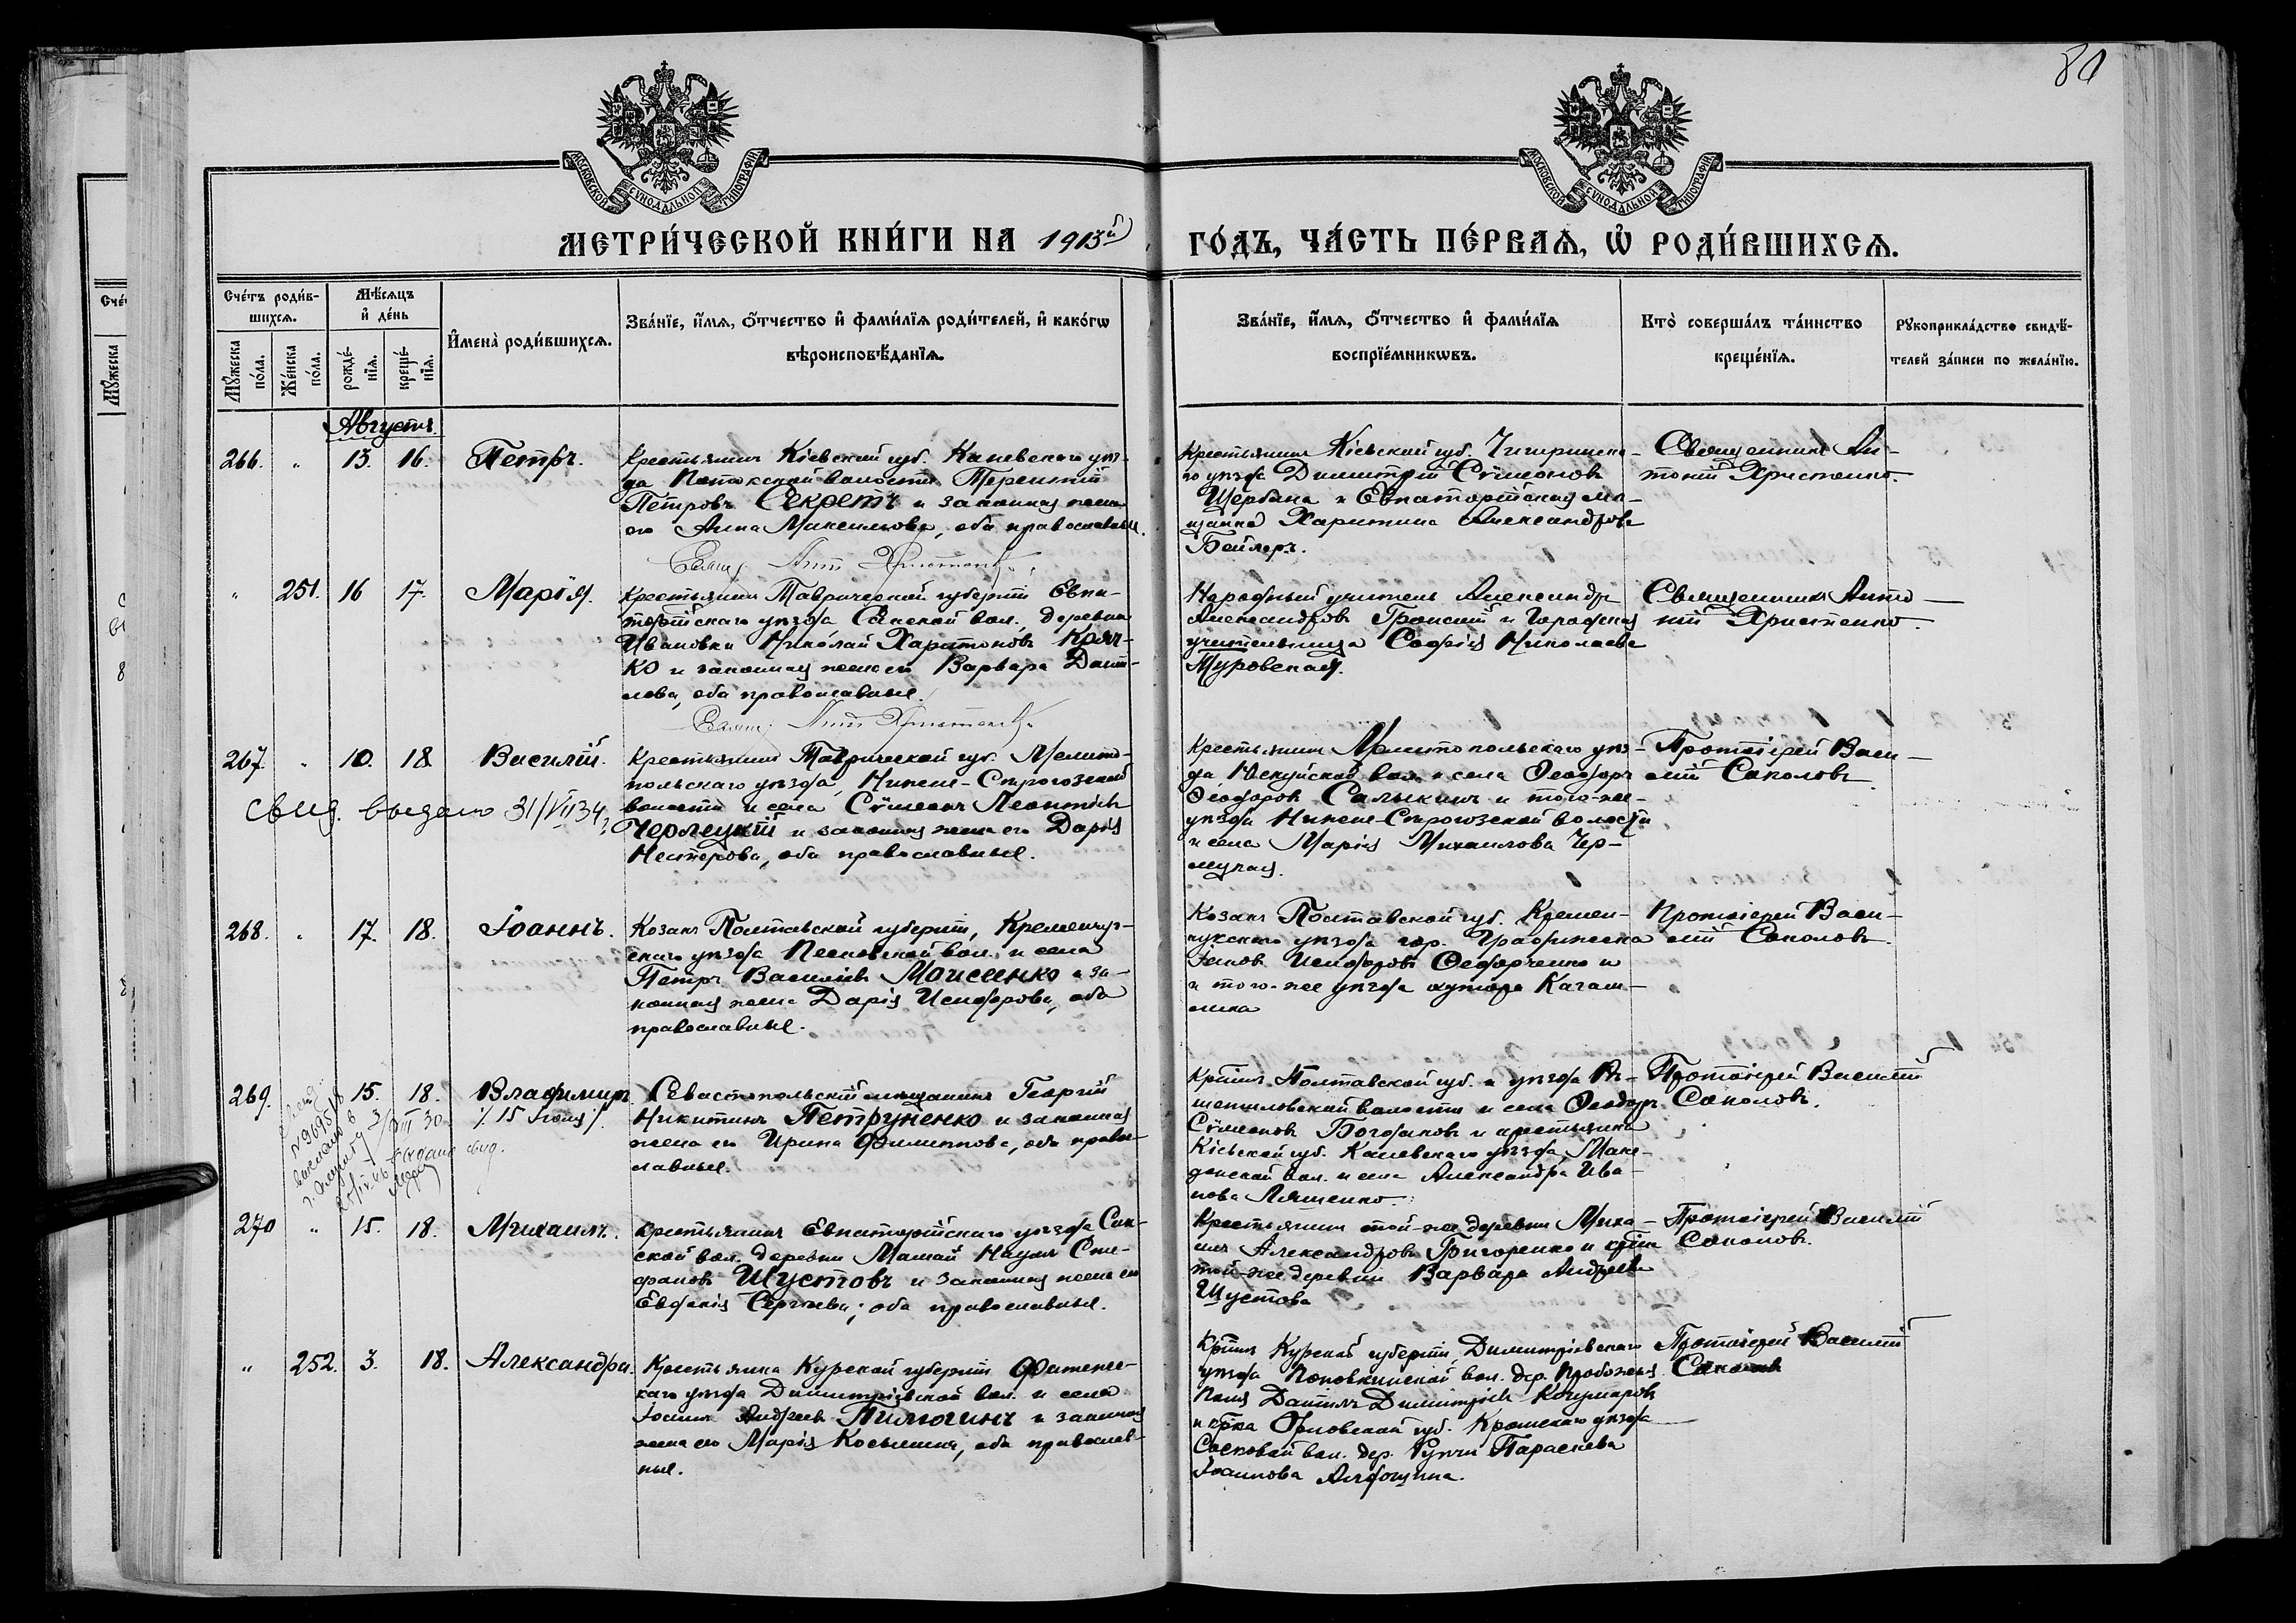 80
МОСКОВСКОЙ СѴНОДАЛЬНОЙ ТИПОГРАФІИ
МОСКОВСКОЙ СѴНОДАЛЬНОЙ ТИПОГРАФІИ
МЕТРИ́ЧЕСКОЙ КНИ́ГИ НА 1913й
ГО́ДЪ, ЧА́СТЬ ПЕ́РВАѦ, Ѡ РОДИ́ВШИХСѦ.
Сче́тъ роди́в-
шихсѧ.
Мꙋ́жеска
по́ла.
Же́нска
по́ла.
Мѣ́сѧцъ
и҆ де́нь
рожде́-
нїѧ.
креще́-
нїѧ.
И҆мена̀ роди́вшихсѧ.
Зва́нїе, и҆́мѧ, ѻ҆́тчество и҆ фами́лїѧ роди́телей, и҆ како́гѡ
вѣроисповѣ́данїѧ.
Зва́нїе, и҆́мѧ, ѻ҆́тчество и҆ фами́лїѧ
воспрїе́мникѡвъ.
Кто̀ соверша́лъ та́инство
креще́нїѧ.
Рꙋкоприкла́дство свидѣ́-
телей за́писи по жела́нїю.
Августъ.
266. " 13. 16. Петръ.
Крестьянинъ Кіевской губ. Каневскаго уѣз-
да Потокской волости Терентій
Петровъ Секретъ и законная жена
его Анна Максимова, оба православные.
Крестьянинъ Кіевской губ. Чигиринска-
го уѣзда Димитрій Сѵмеоновъ
Щербина и Евпаторійская мѣ-
щанка Харитина Александрова
Бейлеръ.
Священникъ Ан-
тоній Христенко.
" 251. 16 17. Марія.
Крестьянинъ Таврической губерніи Евпа-
торійскаго уѣзда Сакской вол., деревни
Ивановки Николай Харитоновъ Кояч-
ко и законная жена его Варвара Даніи-
лова, оба православные.
Народный учитель Александръ
Александровъ и Городская
учительница Софія Николаева
Муровская.
Священникъ Анто-
ній Христенко.
267. " 10. 18 Василій.
свид. выдано 31/VII 34
Крестьянинъ Таврической губ. Мелито-
польскаго уѣзда, Нижне-Сѣрогозской
волости и села Сѵмеонъ Леонтіевъ
Черлецкій и законная жена его Дарія
Несторова, оба православные.
Крестьянинъ Мелитопольскаго уѣз-
да Юскуйской вол. и села Ѳеодоръ
Ѳеодоровъ Салыкинъ и того-же
уѣзда Нижне-Сѣрогозской волости
и села Марія Михаилова Чер-
лецкая.
Протоіерей Васи-
лій Соколовъ.
268. " 17. 18. Іоаннъ.
Козакъ Полтавской губерніи, Кременчуг-
скаго уѣзда Песковской вол. и села
Петръ Василіевъ Моисеенко и за-
конная жена Дарія Исидорова, оба
православные.
Козакъ Полтавской губ. Кремен-
чугскаго уѣзда гор. Градижска
Іаковъ Исидоровъ Ѳедорченко и
и того-же уѣзда хутора Кагам-
лика
Протоіерей Васи-
лій Соколовъ.
269. 15. 18. Владимиръ
/. 15 Іюля /.
выдано свид.
Севастопольскій мѣщанинъ Георгій
Никитинъ Петруненко и законная
жена его Ирина Филиппова, оба право-
славные.
Кр-нинъ Полтавской губ. и уѣзда Рѣ-
шетиловской волости и села Ѳеодоръ
Сѵмеоновъ Богдановъ и крестьянка
Кіевской губ. Каневскаго уѣзда, Маке-
донской вол. и села Александра Ива-
нова Ляшенко.
Протоіерей Василій
Соколовъ.
270 " 15. 18. Михаилъ.
Крестьянинъ Евпаторійскаго уѣзда Сак-
ской вол. деревни Машай Наумъ Сте-
фановъ Шустовъ и законная жена его
Евдокія Сергѣева; оба православные.
Крестьянинъ той-же деревни Миха-
илъ Александровъ Григоренко и кр-нка
той-же деревни Варвара Андреева
Шустова
Протоіерей Василій
Соколовъ.
" 252. 3. 18. Александра.
Крестьянка Курской губерніи Фатежс-
каго уѣзда Димитріевской вол. и села
Іоаннъ Андреевъ Пилюгинъ и законная
жена его Марія Косьмина, оба православ-
ные.
Кр-нинъ Курской губерніи, Димитріевскаго
уѣзда Поповкинской вол. дер.
Поля Даніилъ Димитріевъ
и кр-нка Орловской губ. Кромскаго уѣзда
Сосковой вол. дер. Параскева
Іоаннова
Протоіерей Василій
Соколовъ